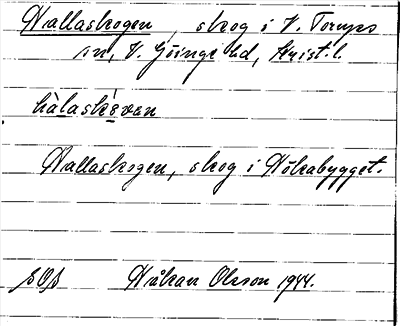 Hallaskogen, skog i V. Torups
sn, V. Göinge hd, Krist. l.
hàlaskẃvan
Hallaskogen, skog i Hökabygget.
SOS Håkan Olsson 1944.